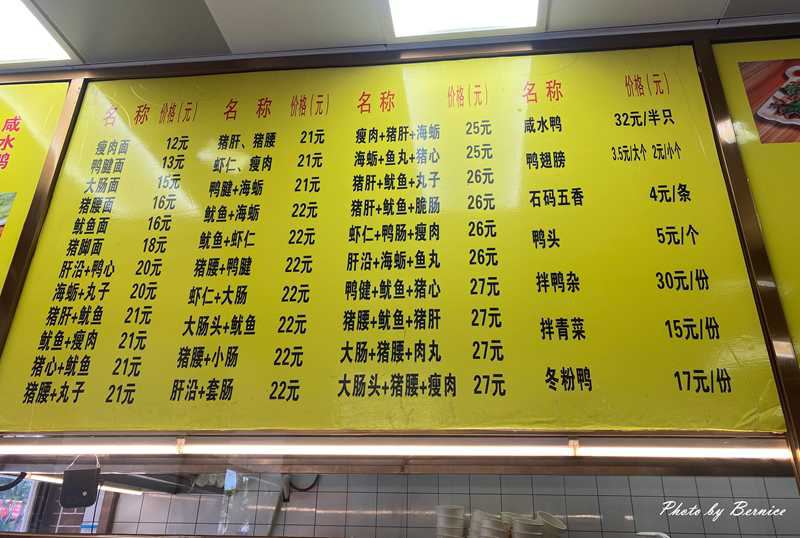 咸水鸭
名称 价格(元) 名称 价格(元) 名称 价格(元) 名称 价格(元)
瘦肉面 12元
鸭腱面 13元
大肠面 15元
猪腰面 16元
鱿鱼面 16元
猪脚面 18元
肝沿+鸭心 20元
海蛎+丸子 20元
猪肝+鱿鱼 21元
鱿鱼+瘦肉 21元
猪心+鱿鱼 21元
猪腰+丸子 21元
猪肝、猪腰 21元
虾仁、瘦肉 21元
鸭腱+海蛎 21元
鱿鱼+海蛎 22元
鱿鱼+虾仁 22元
猪腰+鸭腱 22元
虾仁+大肠 22元
大肠头+鱿鱼 22元
猪腰+小肠 22元
肝沿+套肠 22元
瘦肉+猪肝+海蛎 25元
海蛎+鱼丸+猪心 25元
猪肝+鱿鱼+丸子 26元
猪肝+鱿鱼+脆肠 26元
虾仁+鸭肠+瘦肉 26元
肝沿+海蛎+鱼丸 26元
鸭腱+鱿鱼+猪心 27元
猪腰+鱿鱼+猪肝 27元
大肠+猪腰+肉丸 27元
大肠头+猪腰+瘦肉 27元
咸水鸭 32元/半只
鸭翅膀 3.5元/大个 2元/小个
石码五香 4元/条
鸭头 5元/个
拌鸭杂 30元/份
拌青菜 15元/份
冬粉鸭 17元/份
Photo by Bernice